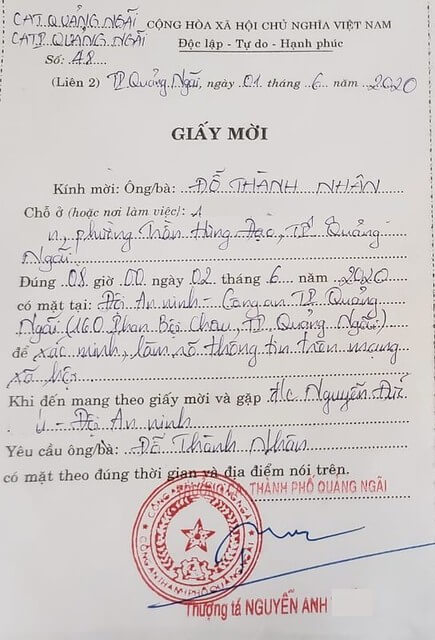 CAT. QUẢNG NGÃI
CATP. QUẢNG NGÃI
CỘNG HÒA XÃ HỘI CHỦ NGHĨA VIỆT NAM
Độc lập - Tự do - Hạnh phúc
Số: 48
(Liên 2) TP Quảng Ngãi, ngày 01 tháng 6 năm 2020
GIẤY MỜI
Kính mời: Ông/bà: ĐỖ THÀNH NHÂN
Chỗ ở (hoặc nơi làm việc):
phường Trần Hưng Đạo, TP Quảng
Ngãi
Đúng 08 giờ 00 ngày 02 tháng 6 năm 2020
có mặt tại: Đội An ninh - Công an TP Quảng
Ngãi (160 Phan Bội Châu, TP Quảng Ngãi)
để xác minh, làm rõ thông tin trên mạng
xã hội
Khi đến mang theo giấy mời và gặp đ/c Nguyễn Đức
- Đội An ninh
Yêu cầu ông/bà: Đỗ Thành Nhân
có mặt theo đúng thời gian và địa điểm nói trên.
THÀNH PHỐ QUẢNG NGÃI
Thượng tá NGUYỄN ANH